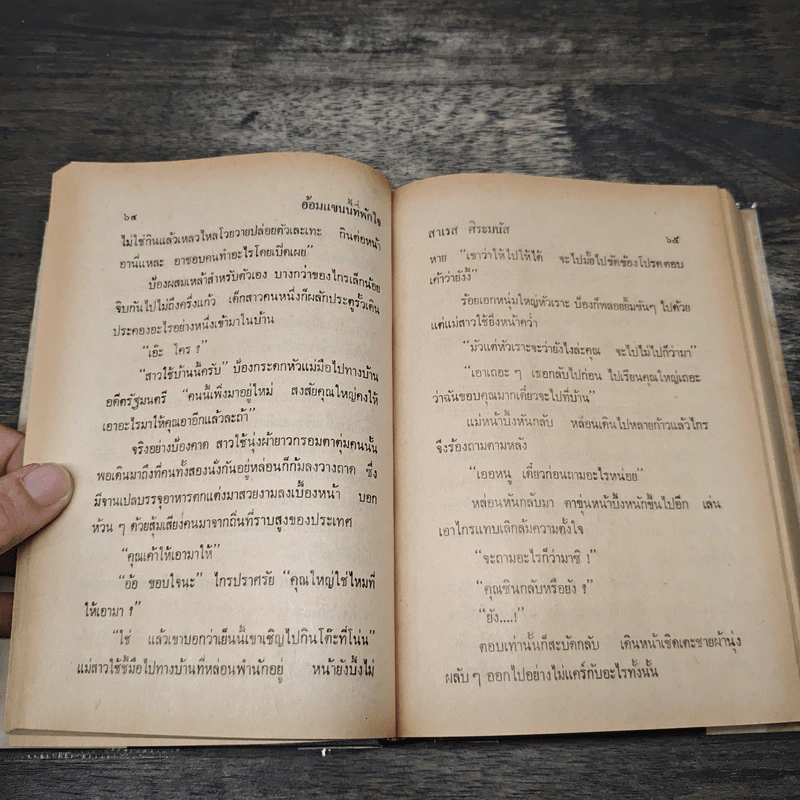 ๖๔
อ้อมแขนนี้ที่พักใจ
ไม่ใช่กินแล้วเหลวไหลโวยวายปล่อยตัวเละเทะ กินต่อหน้า
อานี่แหละ อาชอบคนทำอะไรโดยเปิดเผย”
ป้องผสมเหล้าสำหรับตัวเอง บางกว่าของไกรเล็กน้อย
จิบกันไปไม่ถึงครึ่งแก้ว เด็กสาวคนหนึ่งก็ผลักประตูรั้วเดิน
ประคองอะไรอย่างหนึ่งเข้ามาในบ้าน
“เอ๊ะ ใคร ?”
“สาวใช้บ้านนี้ครับ” ป้องกระดกหัวแม่มือไปทางบ้าน
อดีตรัฐมนตรี “คนนี้เพิ่งมาอยู่ใหม่ สงสัยคุณใหญ่คงให้
เอาอะไรมาให้คุณอาอีกแล้วละถ้า”
จริงอย่างป้องคาด สาวใช้นุ่งผ้ายาวกรอมตาตุ่มคนนั้น
พอเดินมาถึงที่คนทั้งสองนั่งกันอยู่หล่อนก็ก้มลงวางถาด ซึ่ง
มีจานเปลบรรจุอาหารตกแต่งมาสวยงามลงเบื้องหน้า บอก
ห้วน ๆ ด้วยสุ้มเสียงคนมาจากถิ่นที่ราบสูงของประเทศ
“คุณเค้าให้เอามาให้”
“อ้อ ขอบใจนะ” ไกรปราศรัย “คุณใหญ่ใช่ไหมที่
ให้เอามา ?”
“ใช่ แล้วเขาบอกว่าเย็นนี้เขาเชิญไปกินโต๊ะที่โน่น”
แม่สาวใช้ชี้มือไปทางบ้านที่หล่อนพำนักอยู่ หน้ายังบึ้งไม่
สาเรส ศิระมนัส
๖๕
หาย “เขาว่าให้ไปให้ได้ จะไปมั้ยไปขัดข้องโปรดตอบ
เค้าว่ายังงี้”
ร้อยเอกหนุ่มใหญ่หัวเราะ ป้องก็พลอยยิ้มขันๆ ไปด้วย
แต่แม่สาวใช้ยิ่งหน้าคว่ำ
“มัวแต่หัวเราะจะว่ายังไงล่ะคุณ จะไปไม่ไปก็ว่ามา”
“เอาเถอะ ๆ เธอกลับไปก่อน ไปเรียนคุณใหญ่เถอะ
ว่าฉันขอบคุณมากเดี๋ยวจะไปที่บ้าน”
แม่หน้าบึ้งหันกลับ หล่อนเดินไปหลายก้าวแล้วไกร
จึงร้องถามตามหลัง
“เออหนู เดี๋ยวก่อนถามอะไรหน่อย”
หล่อนหันกลับมา ตาขุ่นหน้าบึ้งหนักขึ้นไปอีก เล่น
เอาไกรแทบเลิกล้มความตั้งใจ
“จะถามอะไรก็ว่ามาซิ !”
“คุณซินกลับหรือยัง ?”
“ยัง....!”
ตอบเท่านั้นก็สะบัดกลับ เดินหน้าเชิดเตะชายผ้านุ่ง
ผลับ ๆ ออกไปอย่างไม่แคร์กับอะไรทั้งนั้น